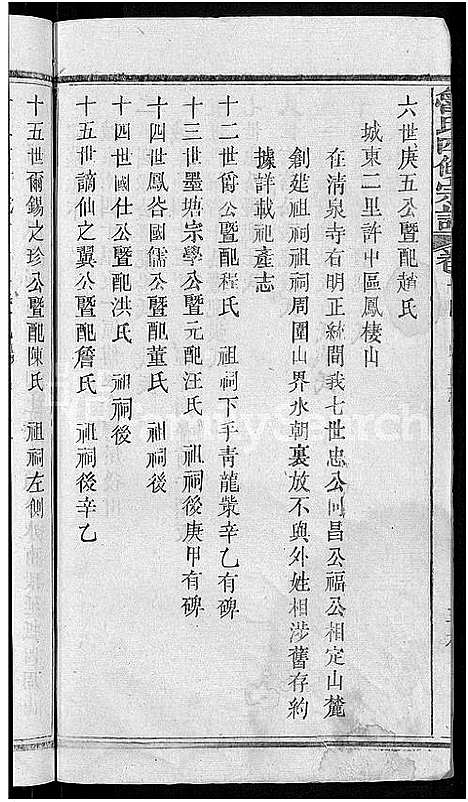 六世庚五公暨配趙氏
城東二里許中區鳳棲山
在清泉寺右明正統間我七世忠公同昌公福公相定山麓
創建祖祠祖祠周圍山界水朝裏放不與外姓相涉舊存約
據詳載祀產志
十二世爵公暨配程氏 祖祠下手青龍嘴辛乙有碑
十三世墨塘宗學公暨元配汪氏 祖祠後庚甲有碑
十四世鳳谷國儒公暨配董氏 祖祠後
十四世國仕公暨配洪氏 祖祠後
十五世謫仙之翼公暨配詹氏 祖祠後辛乙
十五世爾錫之珍公暨配陳氏 祖祠左側
氏四修宗譜 卷
FamilySearch